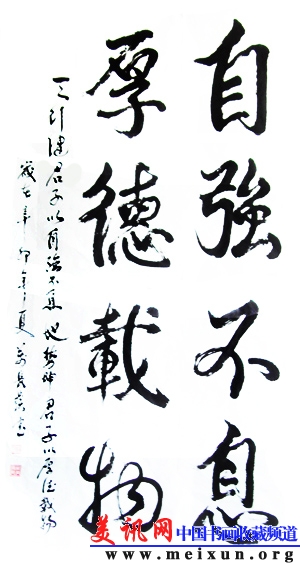 自強不息
厚德載物
天行健君子以自强不息地勢坤君子以厚德載物
歲在辛卯年夏
美讯网 中国书画收藏频道
www.meixun.org